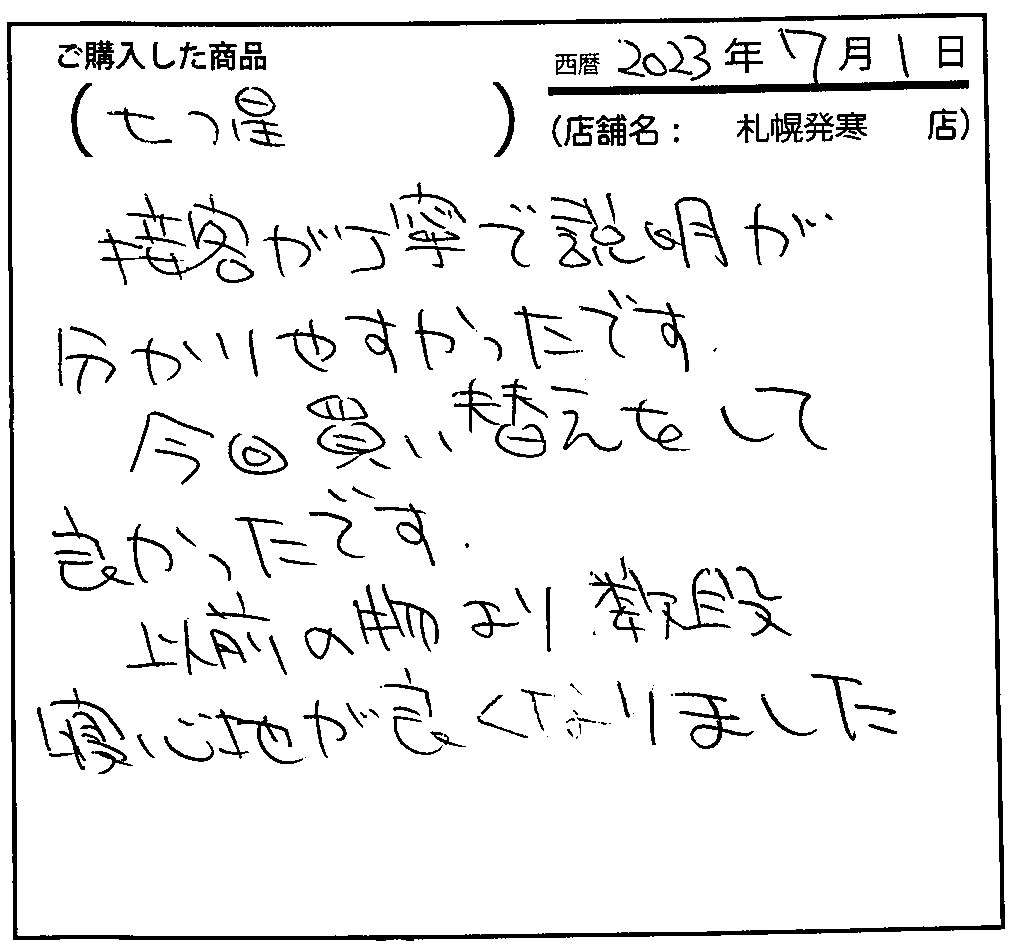 ご購入した商品
西暦 2023年 7月 1日
(七つ星)
(店舗名： 札幌発寒 店)
接客が丁寧で説明が
分かりやすかったです.
今回買い替えをして
良かったです.
以前の物より数段
寝心地が良くなりました